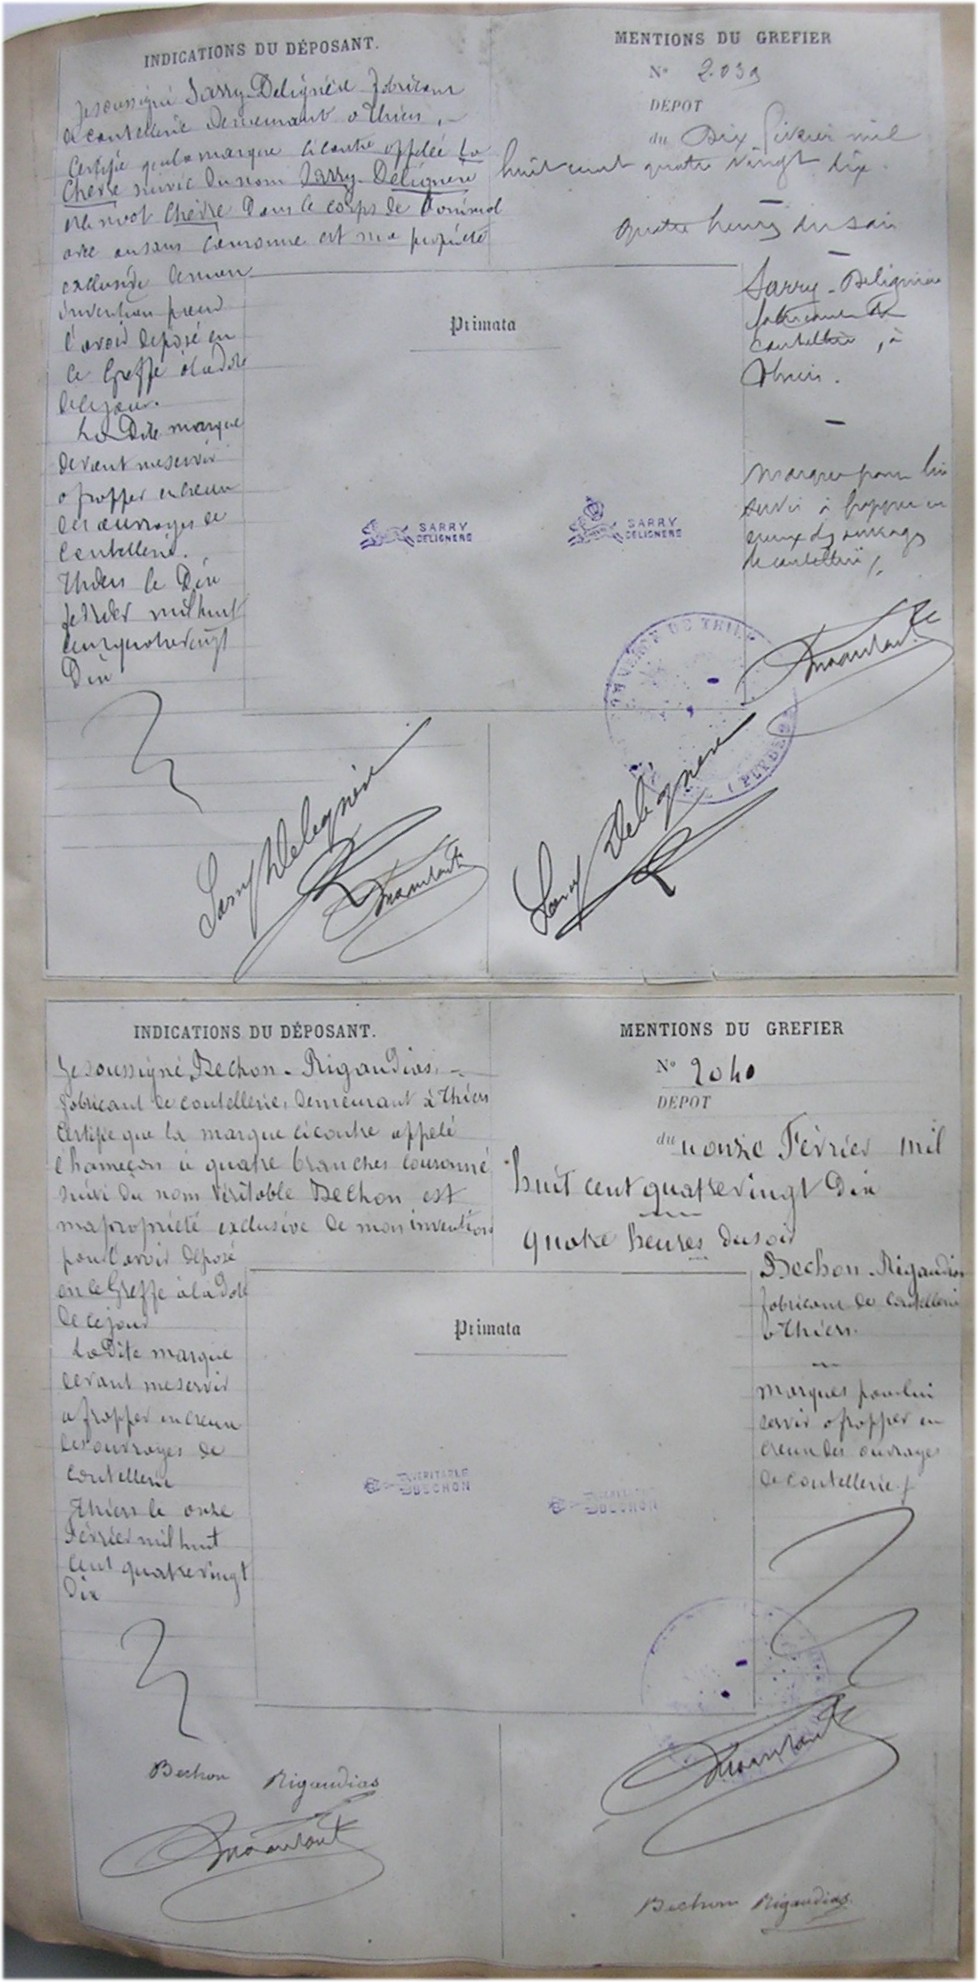 INDICATIONS DU DÉPOSANT.
Je soussigné Sarry-Delignère fabricant
de coutellerie demeurant a Thiers,
Certifie que la marque ci contre appelée La
Chèvre suivie du nom Sarry-Delignère
et le mot Chèvre dans le corps de l'animal
avec ou sans Couronne est ma propriété
exclusive de mon
invention pour
l'avoir déposé en
ce Greffe à la date
de ce jour.
La dite marque
devant me servir
a frapper en creux
des ouvrages de
Coutellerie.
Thiers le Dix
février mil huit
cent quatre vingt
Dix
MENTIONS DU GREFIER
N° 2.039
DÉPOT
du Dix février mil
huit cent quatre vingt dix.
Quatre heures du soir
Sarry-Delignère
fabricant de
coutellerie, à
Thiers.
Marques pour lui
servir à frapper en
creux des ouvrages
de coutellerie
Primata
SARRY
DELIGNERE
SARRY
DELIGNERE
Sarry Delignère
Sarry Delignère
INDICATIONS DU DÉPOSANT.
Je soussigné Bechon-Rigaudias,
fabricant de coutellerie, demeurant à Thiers
Certifie que la marque ci contre appelé
l'hameçon à quatre branches couronné
suivi du nom Véritable Bechon est
ma propriété exclusive de mon invention
pour l'avoir déposé
en ce Greffe à la date
de ce jour
La Dite marque
devant me servir
a frapper en creux
des ouvrages de
coutellerie
Thiers le onze
Février mil huit
cent quatre vingt
Dix
MENTIONS DU GREFIER
N° 2040
DÉPOT
du onze Février mil
huit cent quatre vingt Dix
quatre heures du soir
Bechon-Rigaudias
fabricant de coutellerie
a Thiers.
Marques pour lui
servir a frapper en
creux des ouvrages
de coutellerie
Primata
VERITABLE
BECHON
BECHON
Bechon Rigaudias
Bechon Rigaudias